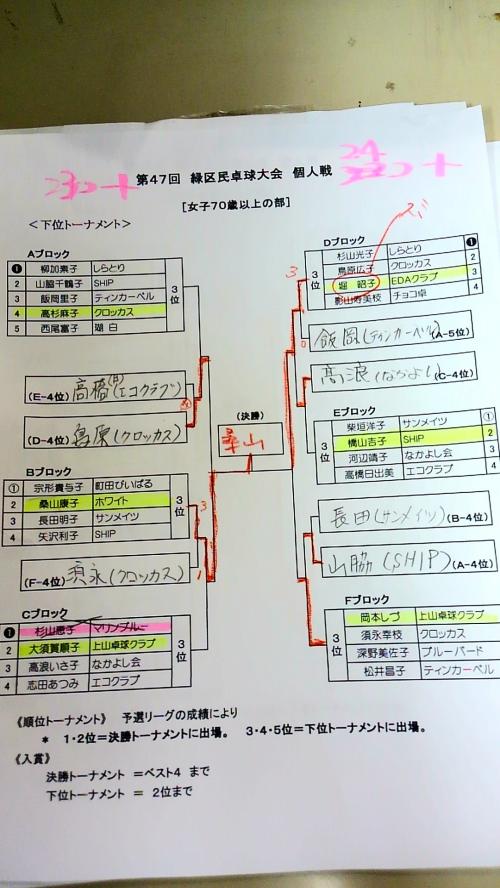 第47回 緑区民卓球大会 個人戦
[女子70歳以上の部]
<下位トーナメント>
Aブロック
❶ 柳加素子 しらとり
2 山脇千鶴子 SHIP
3 飯岡里子 ティンカーベル
4 高杉麻子 クロッカス
5 西尾富子 湖白
3位
(E-4位) 高橋(日)(エコクラブ)
(D-4位) 鳥原(クロッカス)
Bブロック
① 宗形貴与子 町田びいばる
2 桑山康子 ホワイト
3 長田明子 サンメイツ
4 矢沢利子 SHIP
3位
(F-4位) 須永(クロッカス)
Cブロック
❶ 杉山恵子 マリンブルー
2 大須賀順子 上山卓球クラブ
3 高浪いさ子 なかよし会
4 志田あつみ エコクラブ
3位
(決勝)
桑山
Dブロック
杉山光子 しらとり ❶
鳥原広子 クロッカス 2
堀 昭子 EDAクラブ 3
影山寿美枝 チョコ卓 4
3位
飯岡(ティンカーベル) (A-5位)
高浪(なかよし) (C-4位)
Eブロック
柴垣洋子 サンメイツ ①
橋山吉子 SHIP 2
河辺靖子 なかよし会 3
高橋日出美 エコクラブ 4
3位
長田(サンメイツ) (B-4位)
山脇(SHIP) (A-4位)
Fブロック
岡本しづ 上山卓球クラブ
須永幸枝 クロッカス
深野美佐子 ブルーバード
松井昌子 ティンカーベル
3位
《順位トーナメント》 予選リーグの成績により
* 1・2位=決勝トーナメントに出場。 3・4・5位=下位トーナメントに出場。
《入賞》
決勝トーナメント =ベスト4 まで
下位トーナメント = 2位まで